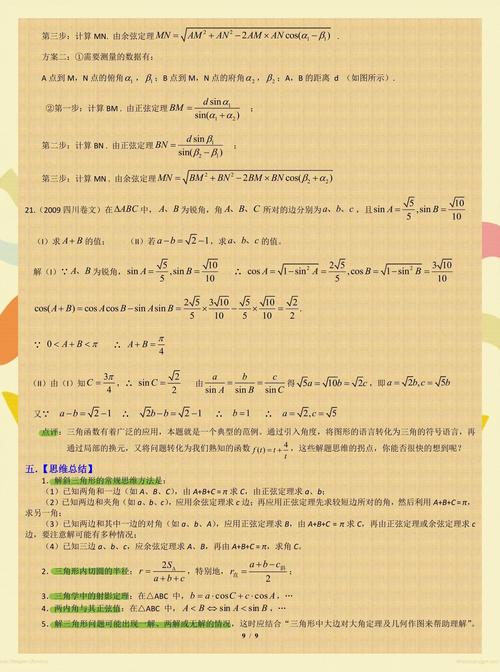 第三步：计算 MN. 由余弦定理 MN = √(AM² + AN² − 2AM × AN cos(α₁ − β₁)) .
方案二：①需要测量的数据有：
A 点到 M，N 点的俯角 α₁，β₁；B 点到 M，N 点的府角 α₂，β₂；A，B 的距离 d （如图所示）.
②第一步：计算 BM . 由正弦定理 BM = d sin α₁ / sin(α₁ + α₂) ；
第二步：计算 BN . 由正弦定理 BN = d sin β₁ / sin(β₂ − β₁) ；
第三步：计算 MN . 由余弦定理 MN = √(BM² + BN² − 2BM × BN cos(β₂ + α₂))
21.（2009 四川卷文）在 ΔABC 中，A、B 为锐角，角 A、B、C 所对的边分别为 a、b、c，且 sin A = √5/5, sin B = √10/10
（I）求 A + B 的值； （II）若 a − b = √2 − 1，求 a、b、c 的值。
解（I）∵ A、B 为锐角，sin A = √5/5, sin B = √10/10 ∴ cos A = √(1 − sin² A) = 2√5/5, cos B = √(1 − sin² B) = 3√10/10
cos(A + B) = cos A cos B − sin A sin B = 2√5/5 × 3√10/10 − √5/5 × √10/10 = √2/2.
∵ 0 < A + B < π ∴ A + B = π/4
（II）由（I）知 C = 3π/4，∴ sin C = √2/2 由 a/sin A = b/sin B = c/sin C 得 √5a = √10b = √2c，即 a = √2b, c = √5b
又∵ a − b = √2 − 1 ∴ √2b − b = √2 − 1 ∴ b = 1 ∴ a = √2, c = √5
点评：三角函数有着广泛的应用，本题就是一个典型的范例。通过引入角度，将图形的语言转化为三角的符号语言，再
通过局部的换元，又将问题转化为我们熟知的函数 f(t) = t + 4/t，这些解题思维的拐点，你能否很快的想到呢？
五.【思维总结】
1．解斜三角形的常规思维方法是：
（1）已知两角和一边（如 A、B、C），由 A+B+C = π 求 C，由正弦定理求 a、b；
（2）已知两边和夹角（如 a、b、c），应用余弦定理求 c 边；再应用正弦定理先求较短边所对的角，然后利用 A+B+C = π，
求另一角；
（3）已知两边和其中一边的对角（如 a、b、A），应用正弦定理求 B，由 A+B+C = π 求 C，再由正弦定理或余弦定理求 c
边，要注意解可能有多种情况；
（4）已知三边 a、b、c，应余弦定理求 A、B，再由 A+B+C = π，求角 C。
2．三角形内切圆的半径：r = 2S△/(a + b + c)，特别地，r直 = (a + b − c斜)/2；
3．三角学中的射影定理：在△ABC 中，b = a·cos C + c·cos A，…
4．两内角与其正弦值：在△ABC 中，A < B ⇔ sin A < sin B，…
5．解三角形问题可能出现一解、两解或无解的情况，这时应结合“三角形中大边对大角定理及几何作图来帮助理解”。
9 / 9